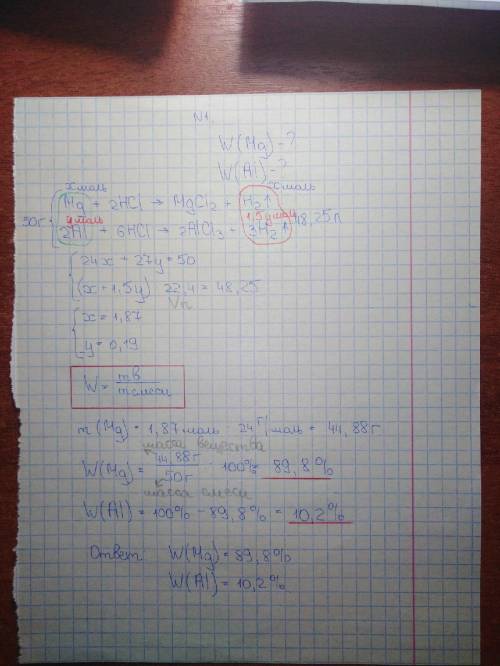 N1
W(Mg)-?
W(Al)-?
x моль x моль
Mg + 2HCl → MgCl2 + H2↑
50г y моль 1,5y моль 48,25л
2Al + 6HCl → 2AlCl3 + 3H2↑
24x + 27y = 50
(x + 1,5y) 22,4 = 48,25
Vn
x = 1,87
y = 0,19
W = mв / mсмеси
m(Mg) = 1,87 моль · 24 г/моль = 44,88г
масса вещества
W(Mg) = 44,88г / 50г · 100% = 89,8%
масса смеси
W(Al) = 100% - 89,8% = 10,2%
Ответ: W(Mg) = 89,8%
W(Al) = 10,2%